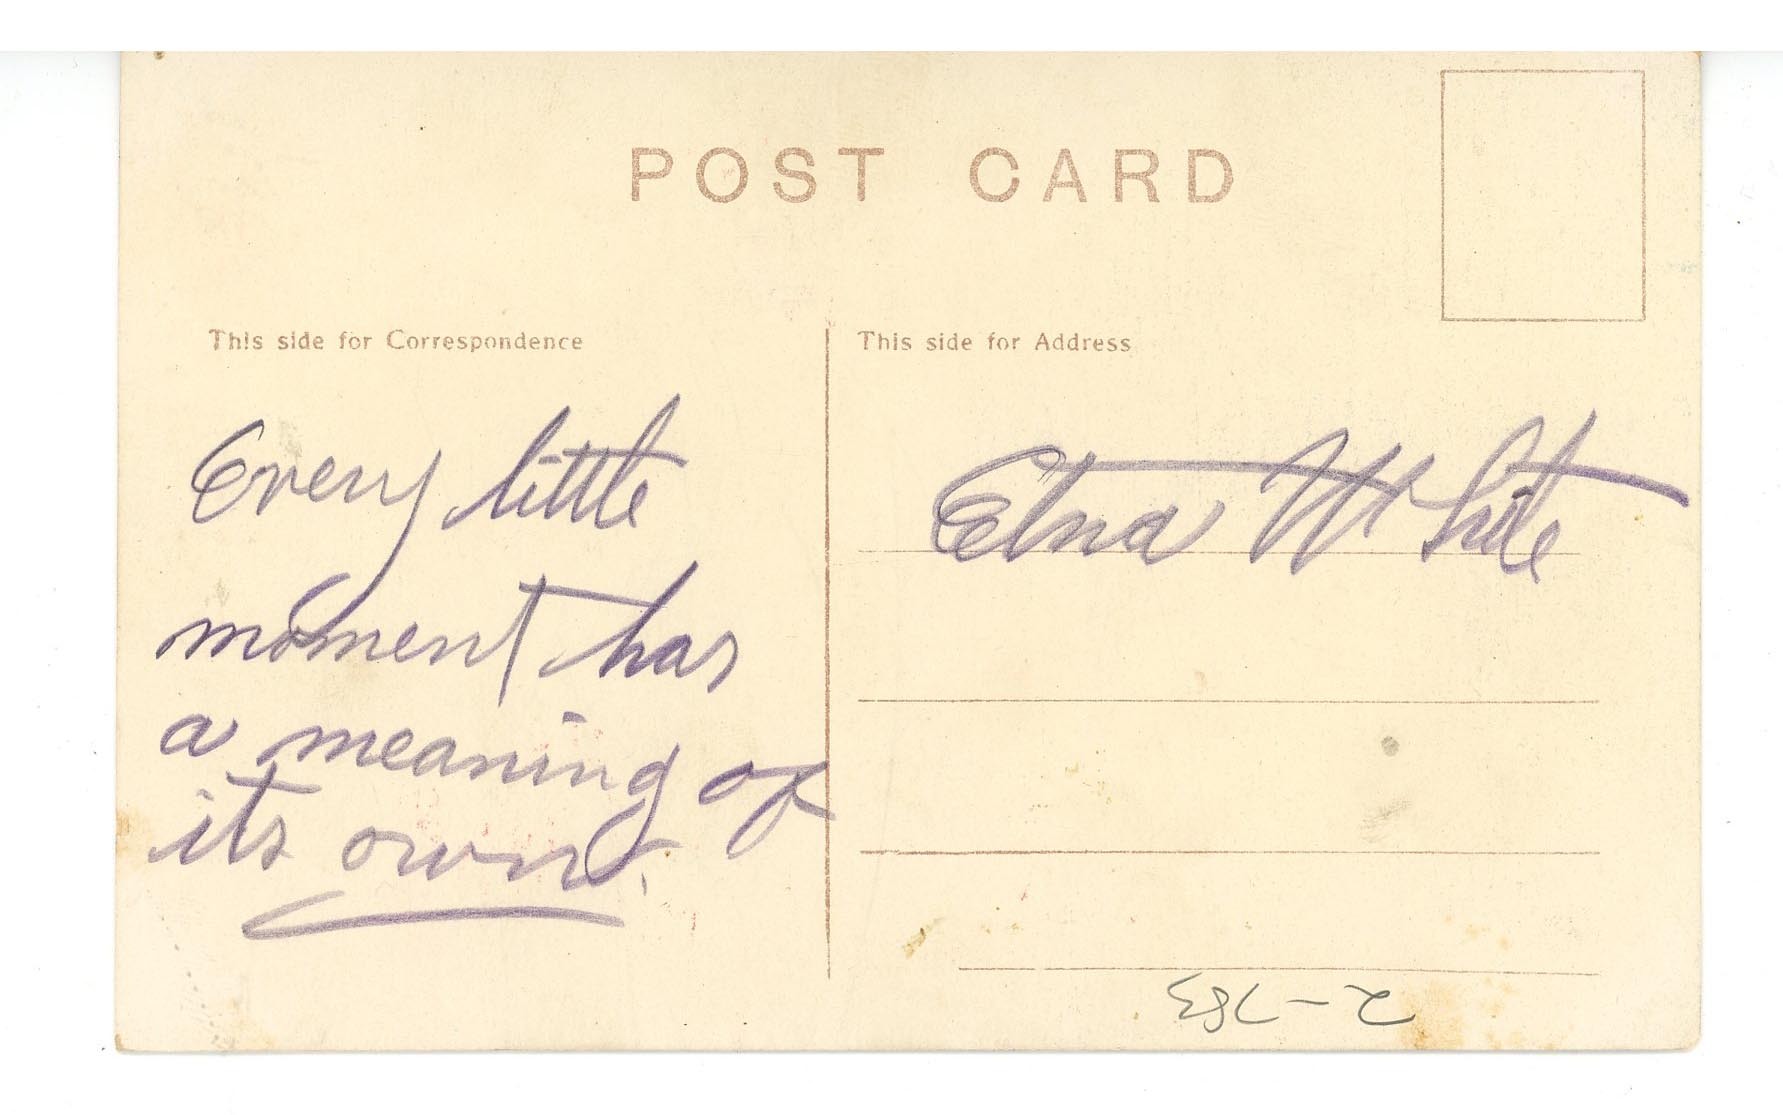 POST CARD
This side for Correspondence
This side for Address
Every little
moment has
a meaning of
its own.
Etna White
2-783